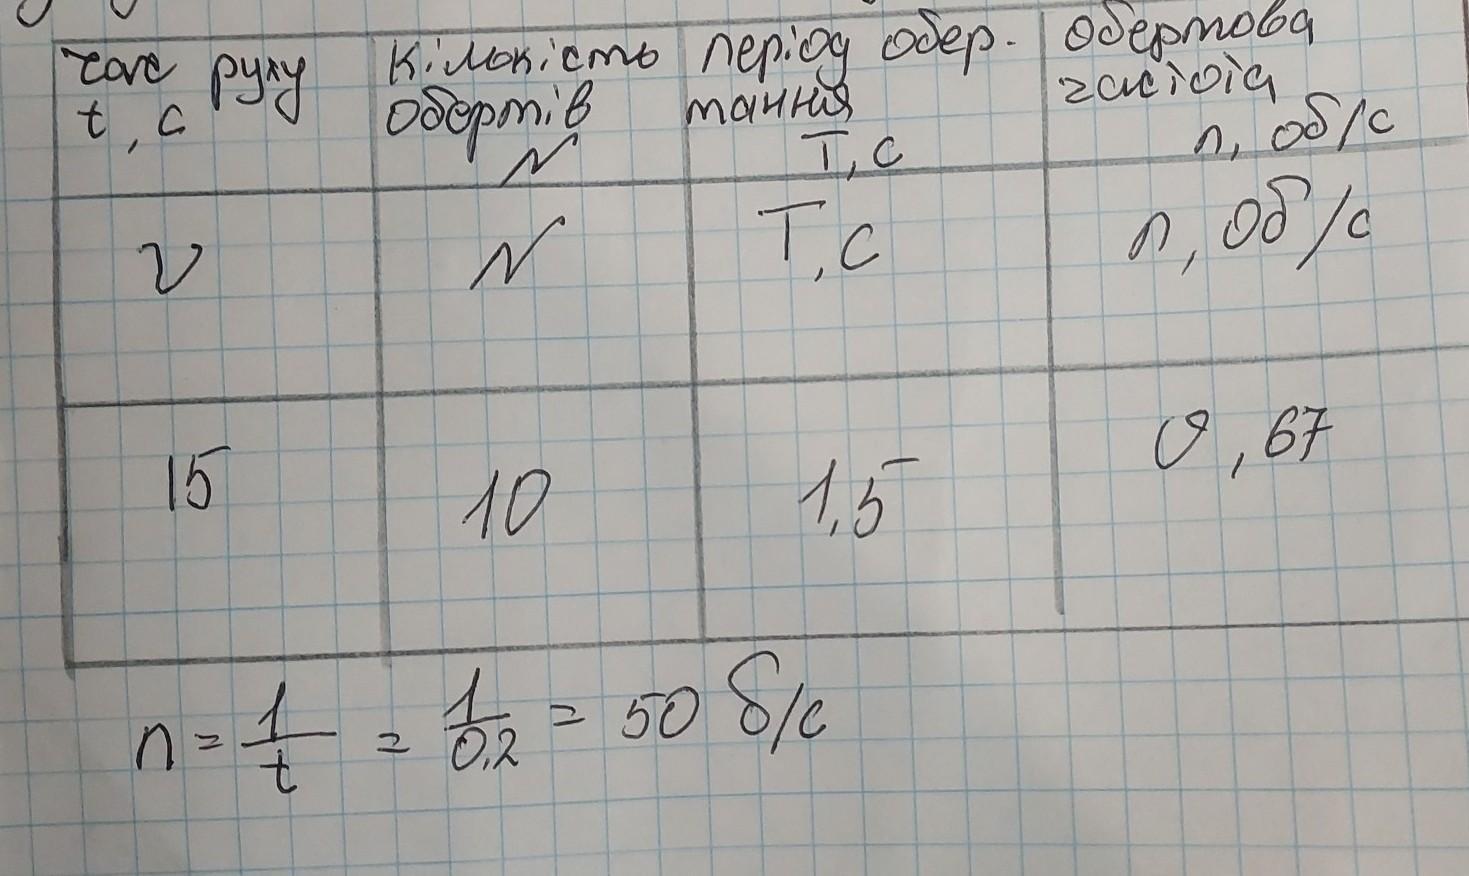 час руху
t, с
Кількість
обертів
N
період обер-
тання
T, с
обертова
частота
n, об/с
υ
N
T, с
n, об/с
15
10
1,5
0,67
n = 1/t = 1/0,2 = 50 б/с